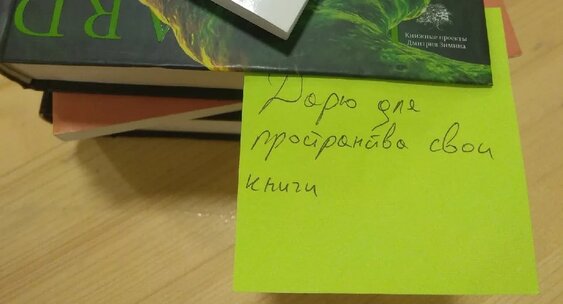 ARD
Книжные проекты
Дмитрия Зимина
Дарю для
пространства свои
книги